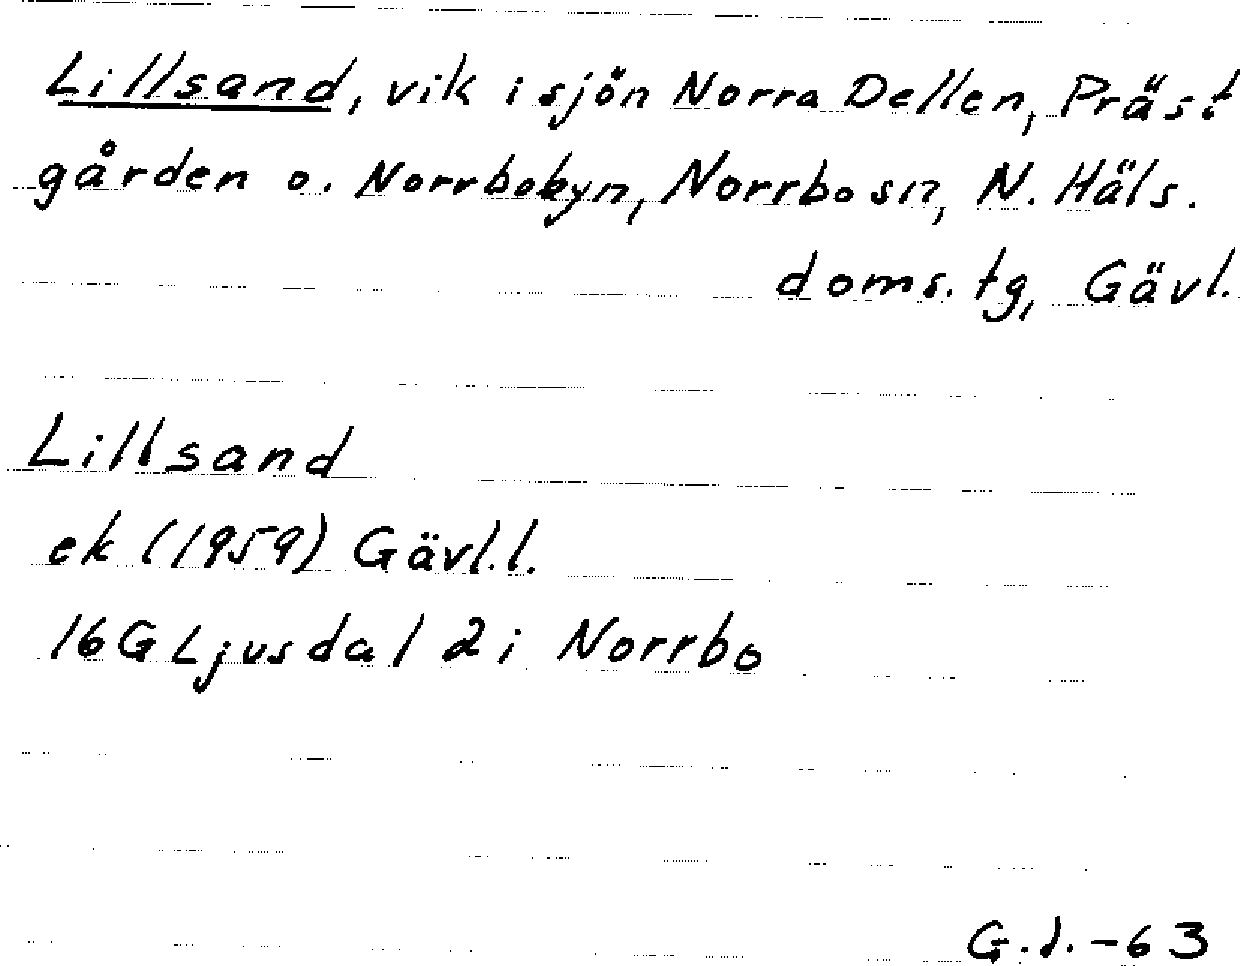 Lillsand, vik i sjön Norra Dellen, Präst
gården o. Norrbobyn, Norrbo sn, N. Häls.
doms. tg, Gävl.
Lillsand
ek (1959) Gävl.l.
16G Ljusdal 2i Norrbo
G.J.-63